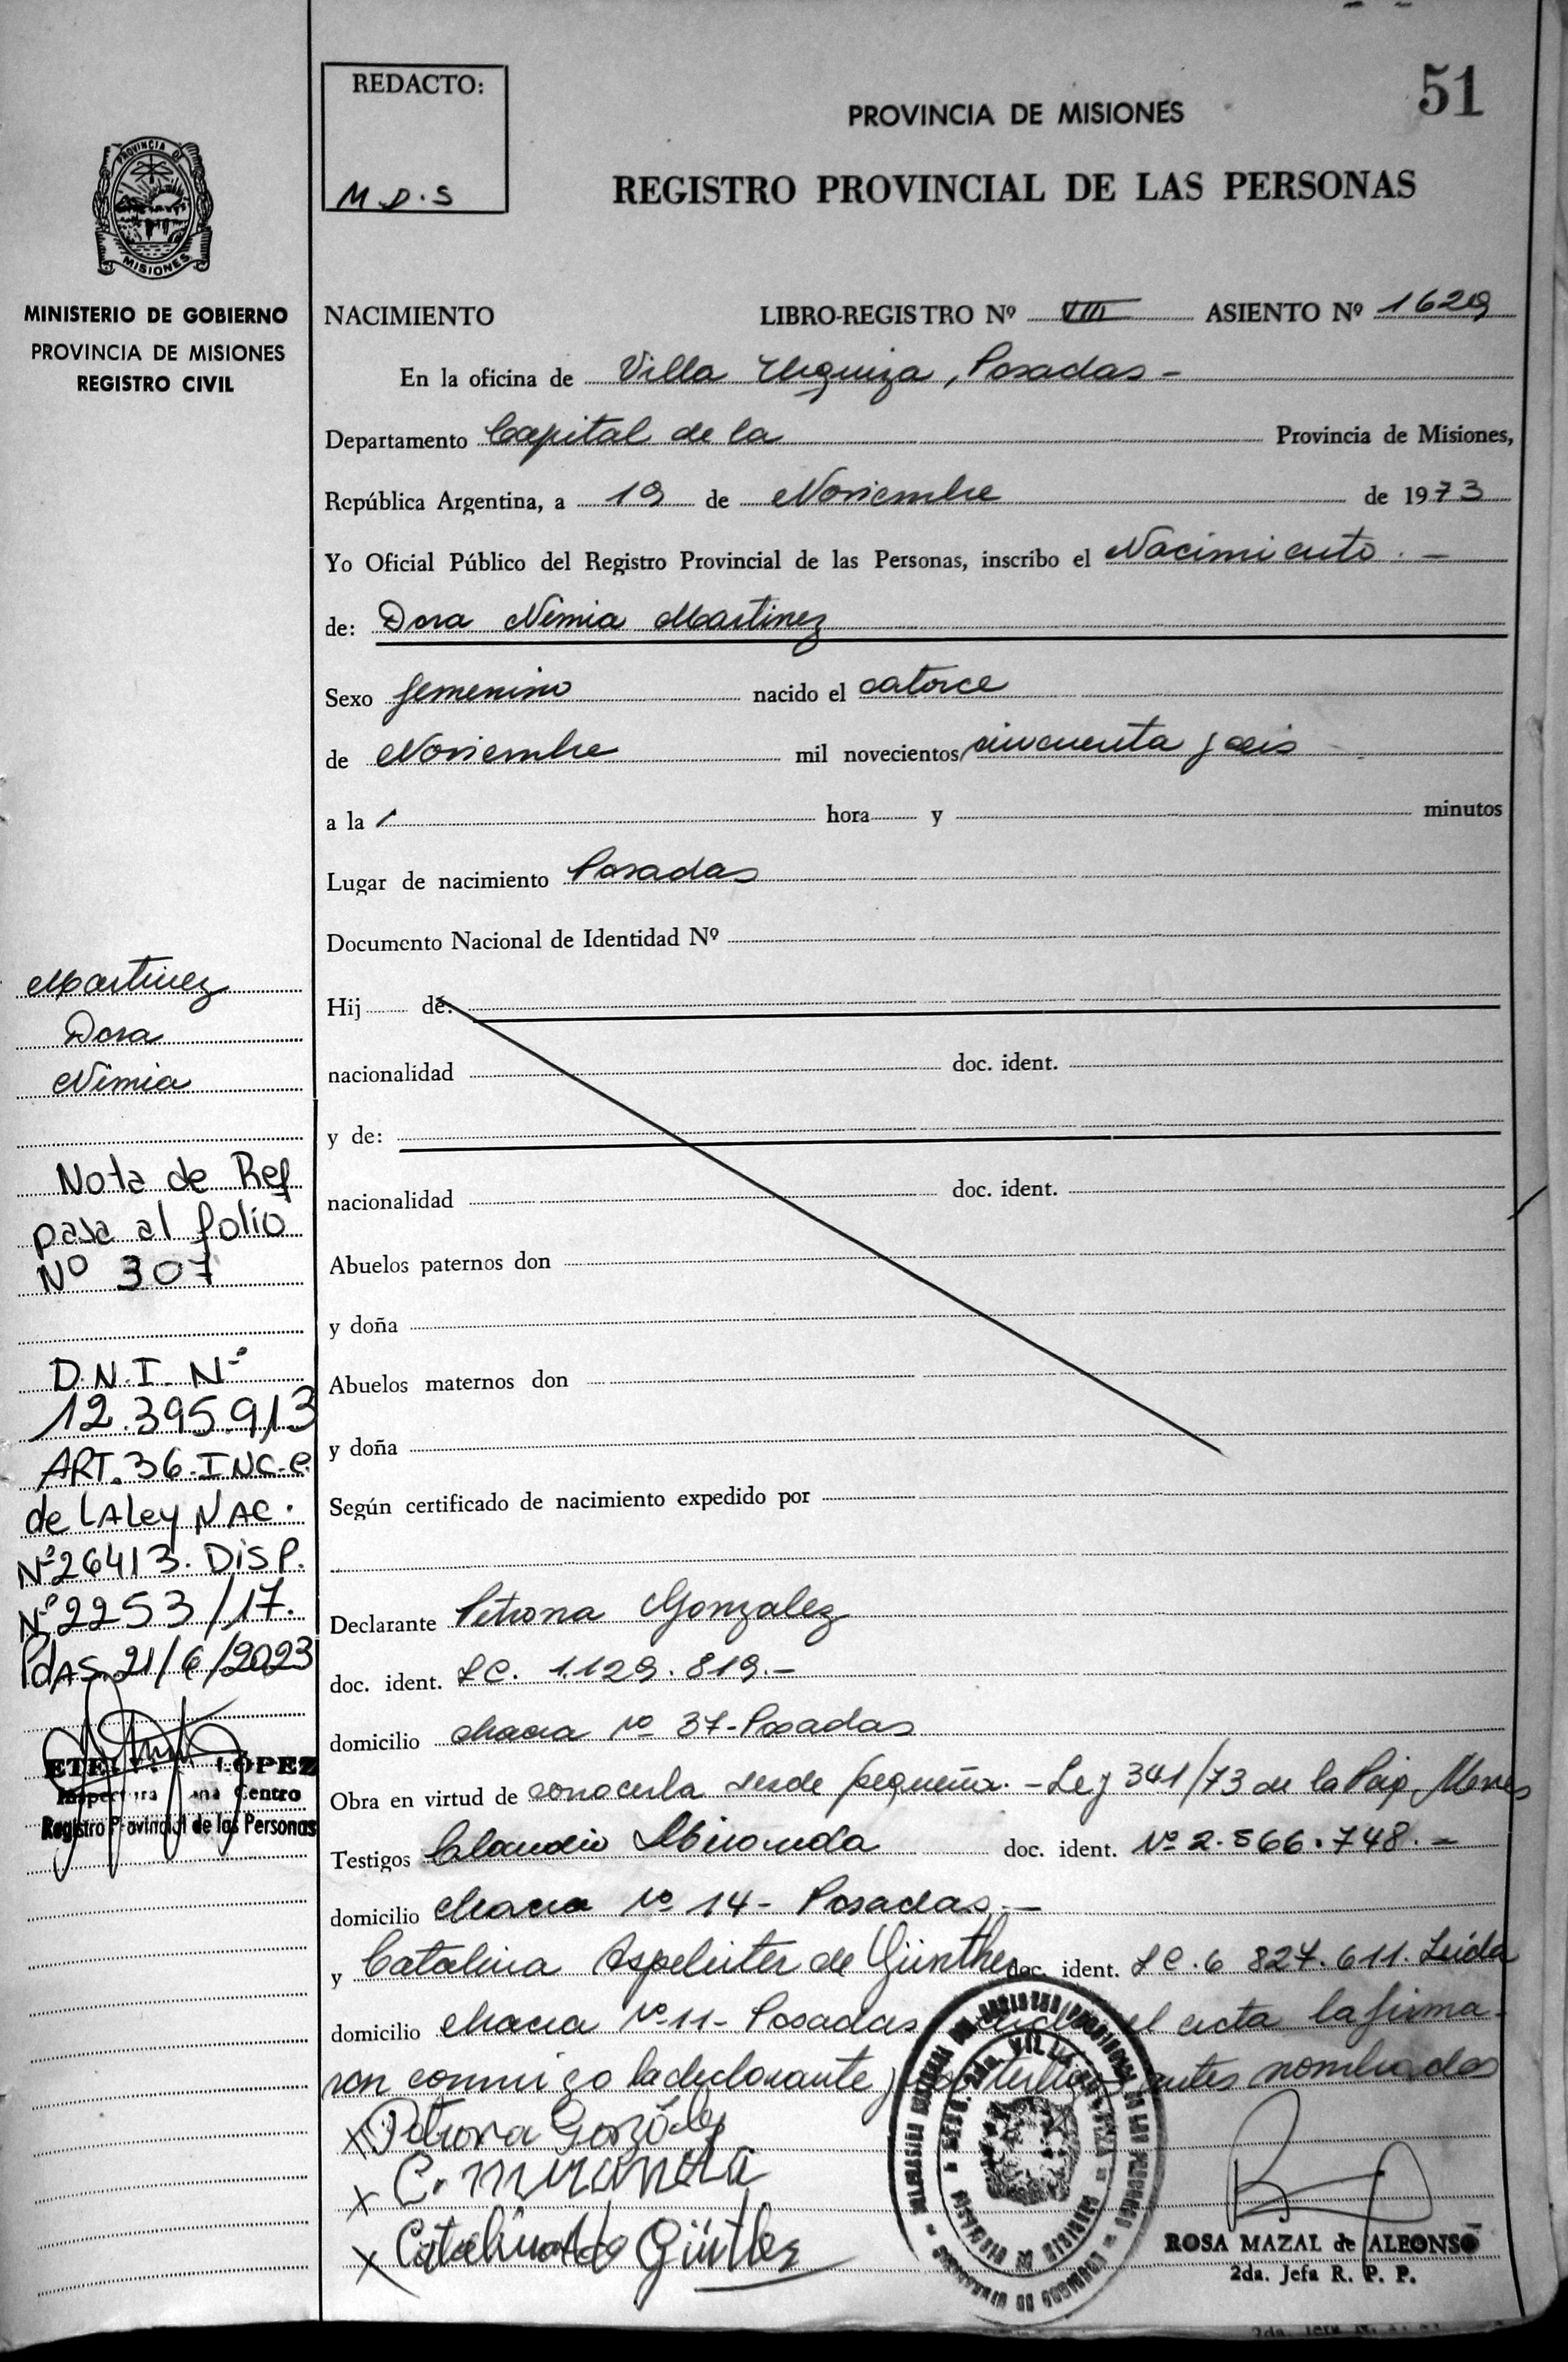 51
REDACTO:
M.D.S
PROVINCIA DE MISIONES
REGISTRO PROVINCIAL DE LAS PERSONAS
PROVINCIA DE
MISIONES
MINISTERIO DE GOBIERNO
PROVINCIA DE MISIONES
REGISTRO CIVIL
NACIMIENTO LIBRO-REGISTRO Nº VIII ASIENTO Nº 1629
En la oficina de Villa Urquiza, Posadas -
Departamento Capital de la Provincia de Misiones,
República Argentina, a 19 de Noviembre de 1973
Yo Oficial Público del Registro Provincial de las Personas, inscribo el Nacimiento. -
de: Dora Nimia Martinez
Sexo femenino nacido el catorce
de Noviembre mil novecientos cincuenta y seis
a la hora y minutos
Lugar de nacimiento Posadas
Documento Nacional de Identidad Nº
Hij de:
nacionalidad doc. ident.
y de:
nacionalidad doc. ident.
Abuelos paternos don
y doña
Abuelos maternos don
y doña
Según certificado de nacimiento expedido por
Declarante Petrona Gonzalez
doc. ident. LC. 1.129.819.-
domicilio chacra nº 37-Posadas
Obra en virtud de conocerla desde pequeña. - Ley 341/73 de la
Testigos Claudio Miranda doc. ident. Nº 2.566.748.-
domicilio chacra nº 14- Posadas.-
y Catalina de Günther doc. ident. LC.6 827.611. Leida
domicilio chacra nº 11- Posadas el acta la firma-
ron conmigo la declarante y testigos antes nombrados
x Petrona González
x C. miranda
x Catalina de Günther
ROSA MAZAL de ALFONSO
2da. Jefa R. P. P.
Martinez
Dora
Nimia
Nota de Ref
pasa al folio
Nº 307
D.N.I. Nº
12.395.913
ART. 36-INC-C
de LA Ley NAC.
Nº 26413. DISP.
Nº 2253/17.
PdAS. 21/6/2023
LÓPEZ
Centro
Registro Provincial de las Personas